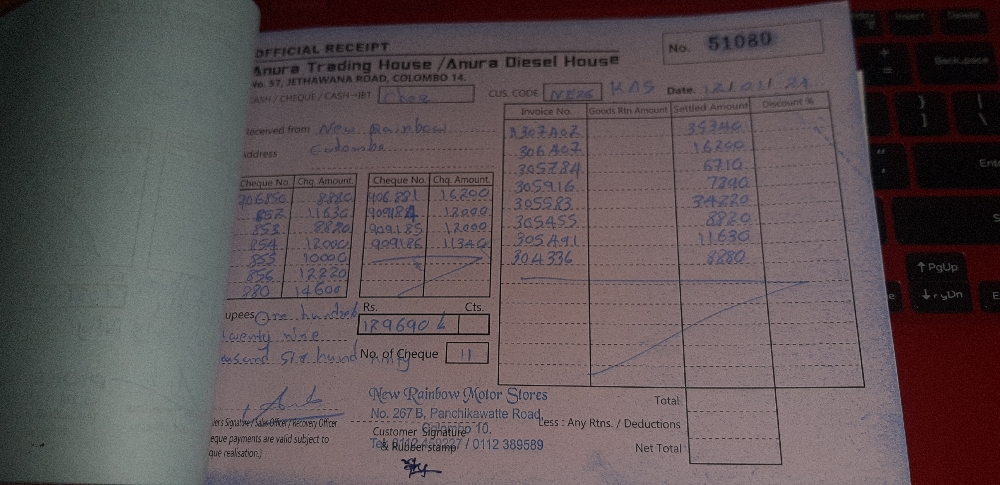 OFFICIAL RECEIPT
No. 51080
Anura Trading House /Anura Diesel House
No. 57, JETHAWANA ROAD, COLOMBO 14.
CASH / CHEQUE / CASH-IBT Chqe CUS. CODE NE26 KAS Date. 12/01/24
Received from New Rainbow
address Colombo
Invoice No. Goods Rtn Amount Settled Amount Discount %
307A07 35340
306A07 16200
305784 6710
305916 7890
305583 34220
305455 8820
305A91 11630
304336 8880
Cheque No. Chq. Amount. Cheque No. Chq. Amount.
906850 8880 906881 16200
852 11630 909184 12000
853 8820 909185 12000
854 12000 909186 11340
855 10000
856 12220
880 14600
upees One hundred
twenty nine
ousand six hund ninty
Rs. Cts.
129690
No. of Cheque 11
New Rainbow Motor Stores
No. 267 B, Panchikawatte Road,
Colombo 10.
Tel: 0112 / 0112 389589
Customer Signature
& Rubber stamp
ers Signature / Sales Officer / Recovery Officer
eque payments are valid subject to
que realisation.)
Total
Less : Any Rtns. / Deductions
Net Total
Insert
Delete
Backspace
Ente
PgUp
PgDn